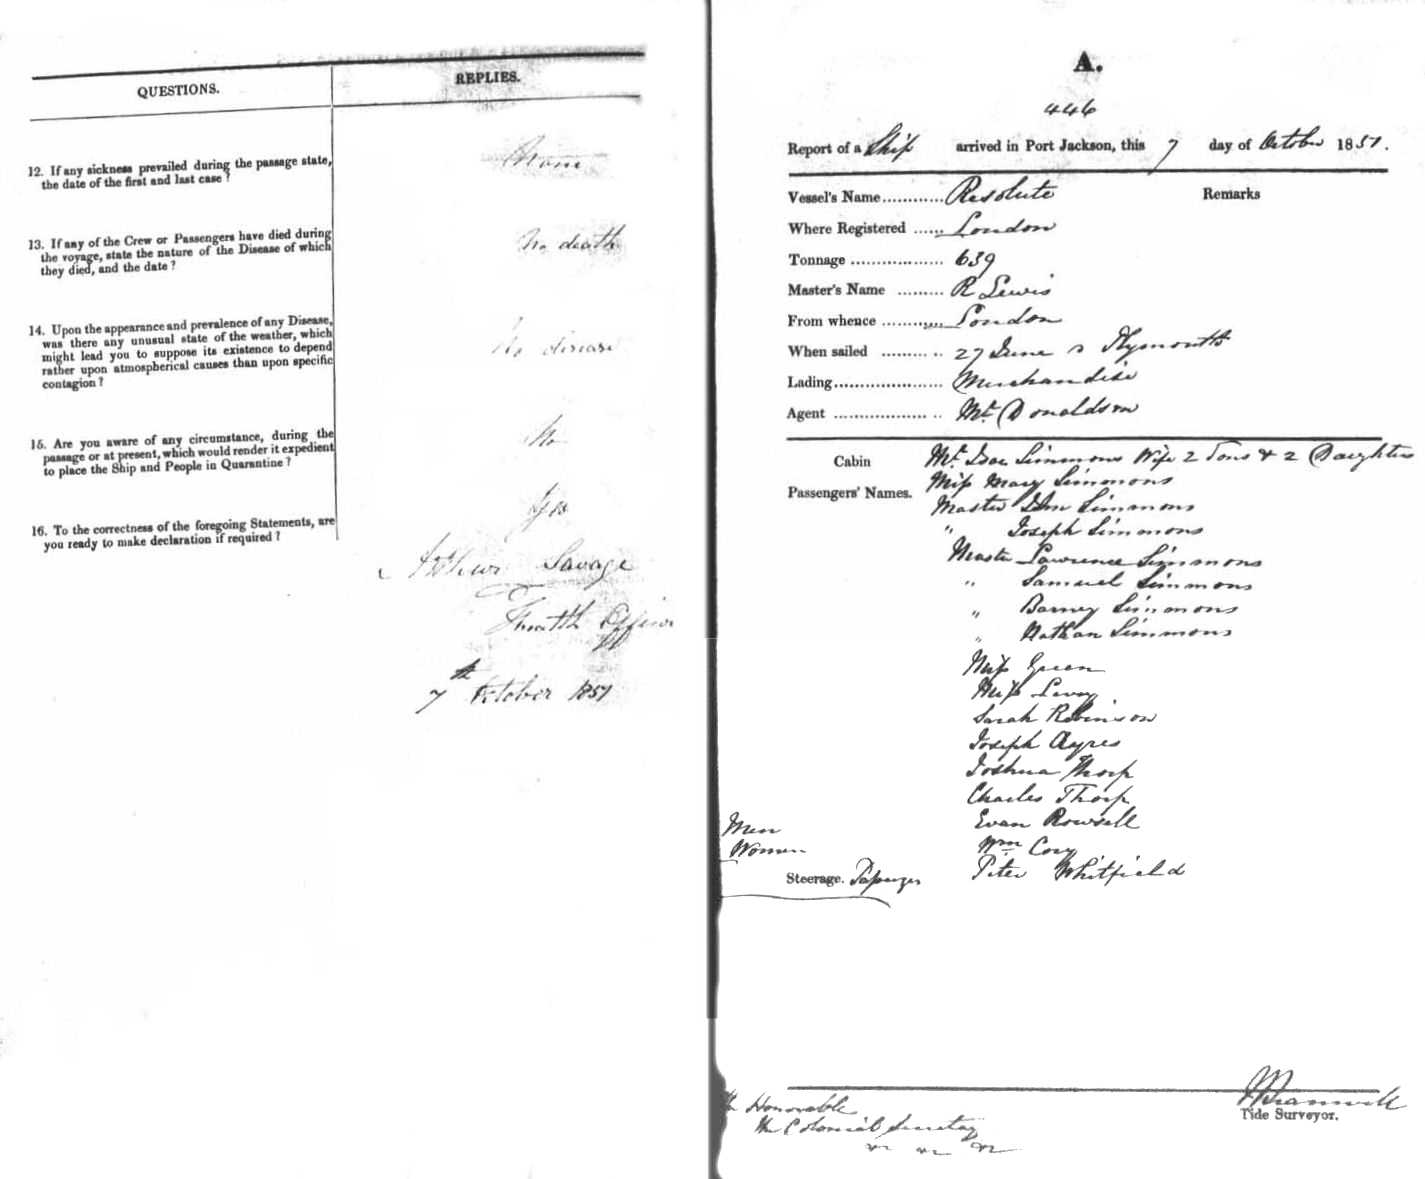 QUESTIONS.
REPLIES.
12. If any sickness prevailed during the passage state,
the date of the first and last case?
None
13. If any of the Crew or Passengers have died during
the voyage, state the nature of the Disease of which
they died, and the date?
No death
14. Upon the appearance and prevalence of any Disease,
was there any unusual state of the weather, which
might lead you to suppose its existence to depend
rather upon atmospherical causes than upon specific
contagion?
No disease
15. Are you aware of any circumstance, during the
passage or at present, which would render it expedient
to place the Ship and People in Quarantine?
No
16. To the correctness of the foregoing Statements, are
you ready to make declaration if required?
Yes
Arthur Savage
Health Officer
7th October 1851
A.
446
Report of a Ship arrived in Port Jackson, this 7 day of October 1851.
Vessel's Name............ Resolute
Remarks
Where Registered ...... London
Tonnage .................. 639
Master's Name ......... R Lewis
From whence ............ London
When sailed ........... 27 June Plymouth
Lading..................... Merchandise
Agent .................... Mr. Donaldson
Cabin
Passengers' Names.
Mr. Isaac Simmons Wife 2 Sons & 2 Daughters
Miss Mary Simmons
Master Simmons
" Joseph Simmons
Master Lawrence Simmons
" Samuel Simmons
" Barney Simmons
" Nathan Simmons
Miss Green
Miss Levy
Sarah Robinson
Joseph Ayres
Joshua Thorp
Charles Thorp
Evan Rowsell
Wm Cory
Peter Whitfield
Men
Women
Steerage. Passenger
Bramwell
Tide Surveyor.
The Honorable
the Colonial Secretary